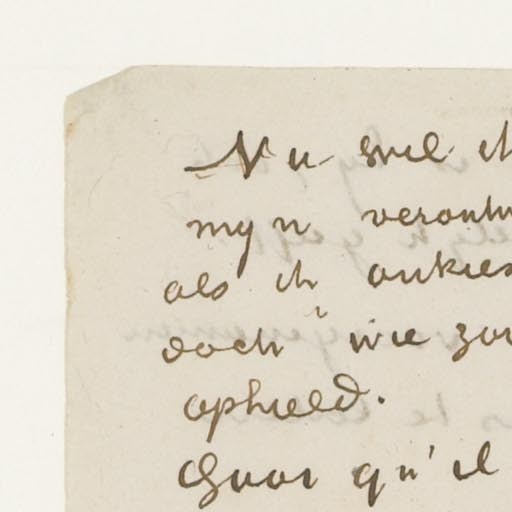 Nu wil ik
myn verontw
als ik ankies
doch wie zou
ophield.
Quoi qu'il